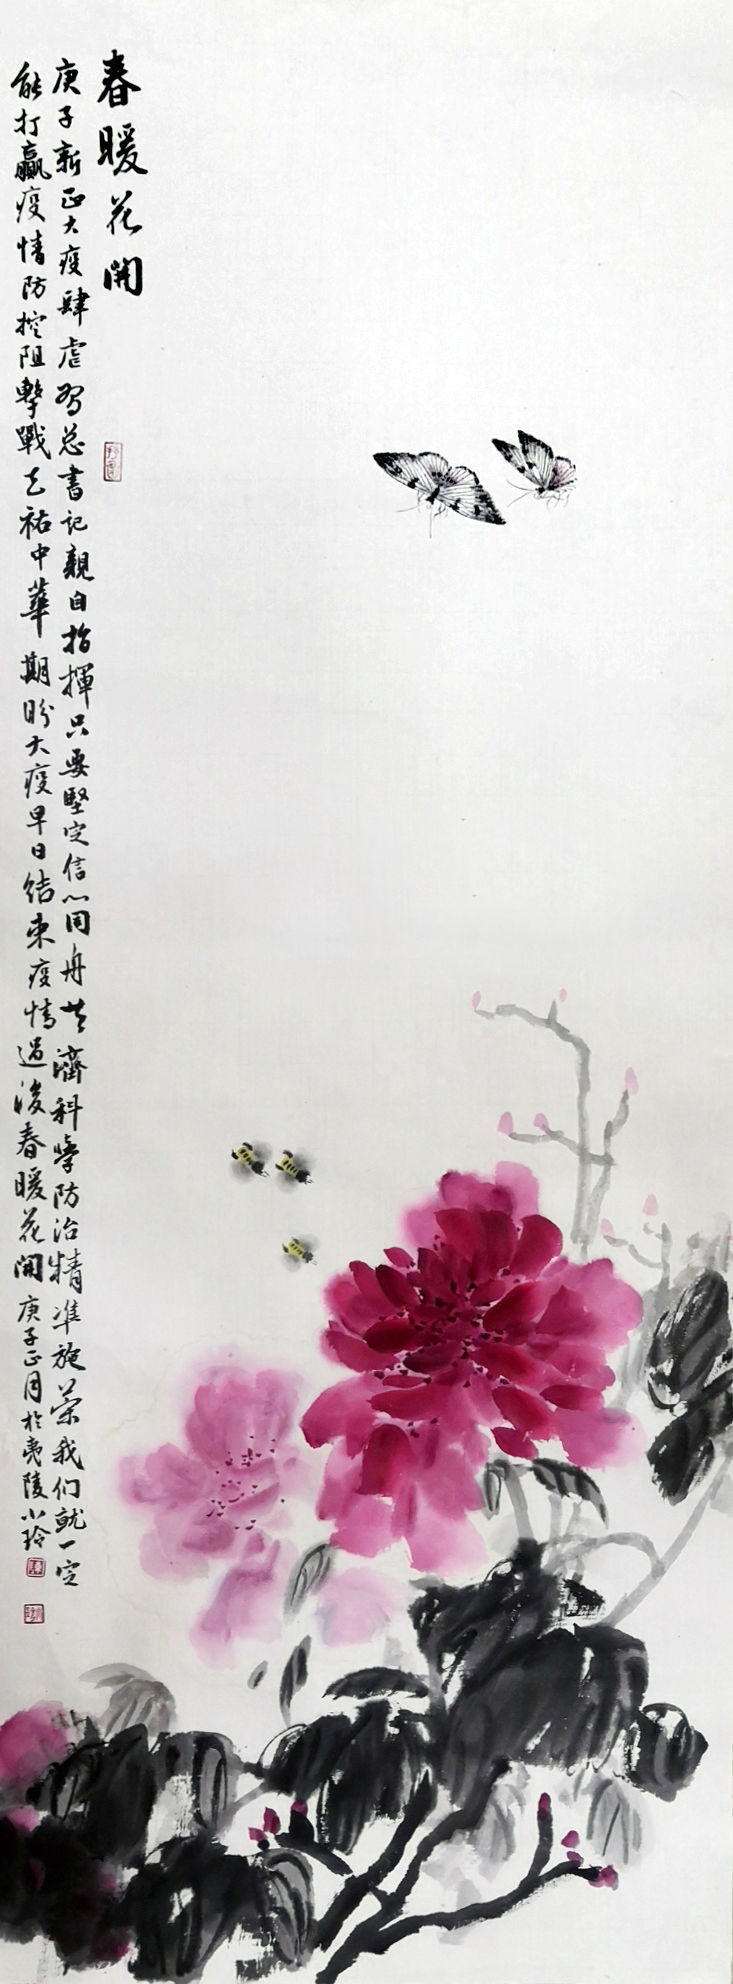 春暖花開
庚子新正大疫肆虐習总書記親自指揮只要堅定信心同舟共濟科學防治精準施策我们就一定
能打贏疫情防控阻擊戰天祐中華期盼大疫早日结束疫情過後春暖花開庚子正月於夷陵小玲